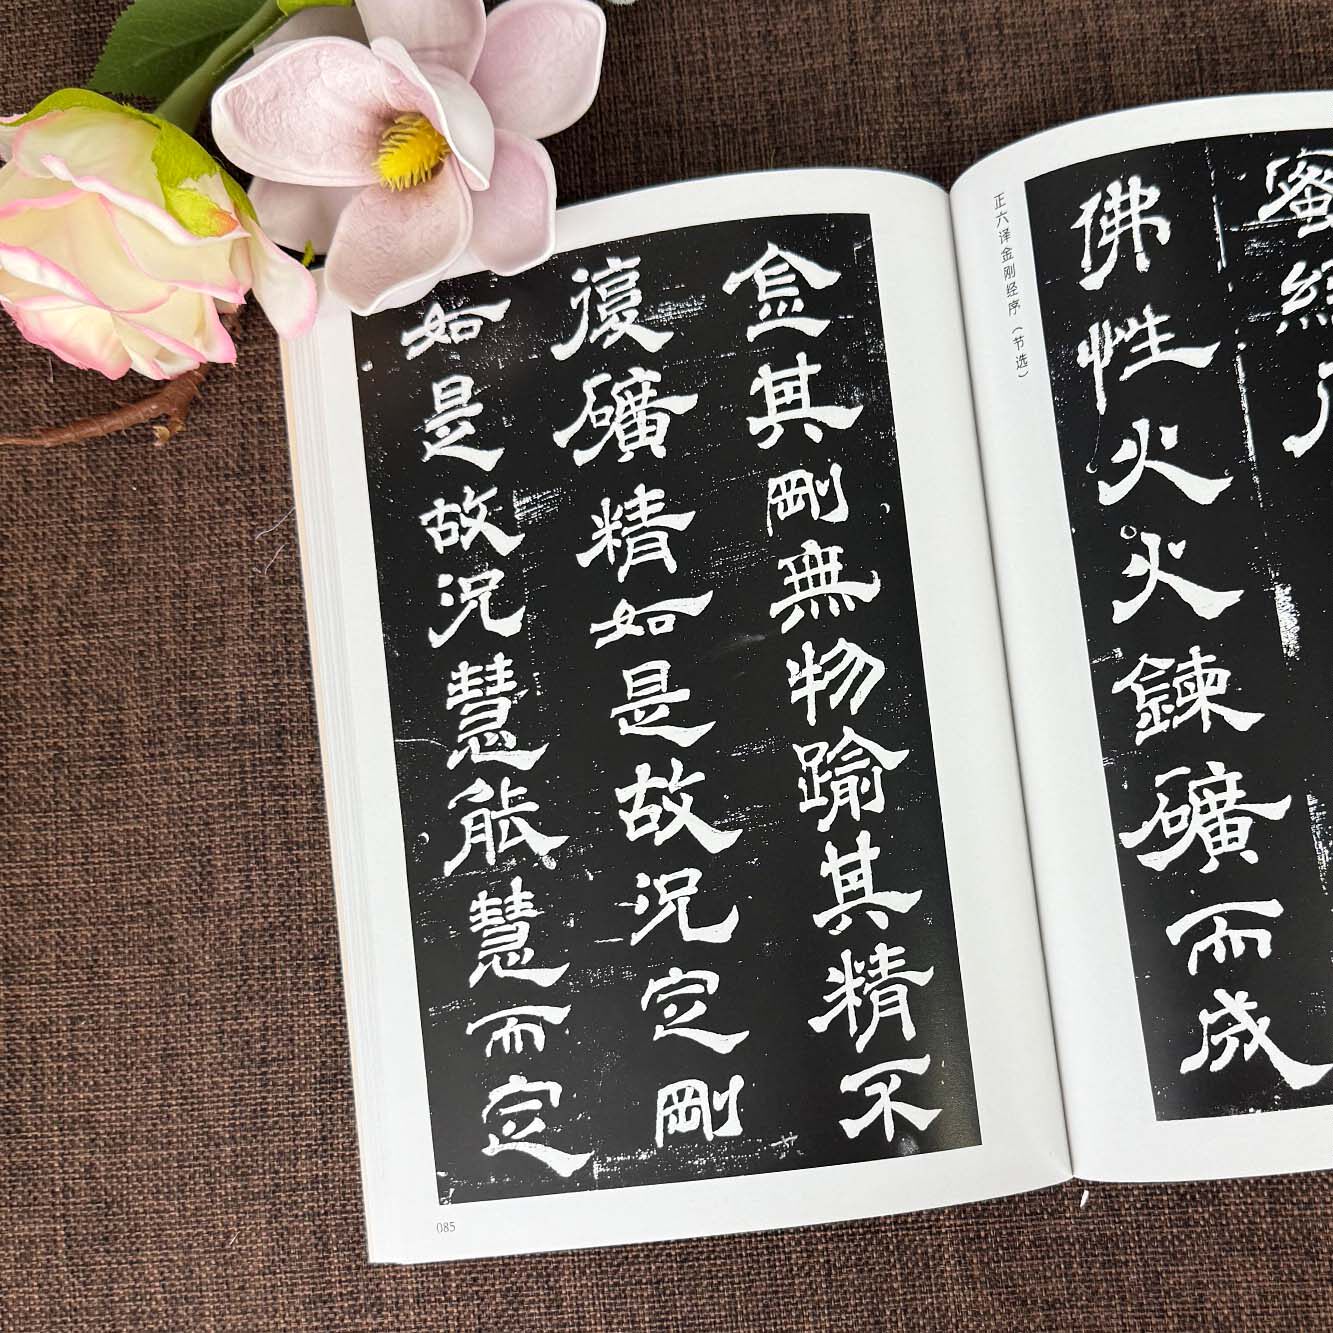 蜜經
佛性火火鍊礦而成
正六译金刚经序（节选）
金其剛無物踰其精不
復礦精如是故況定剛
如是故況慧能慧而定
085